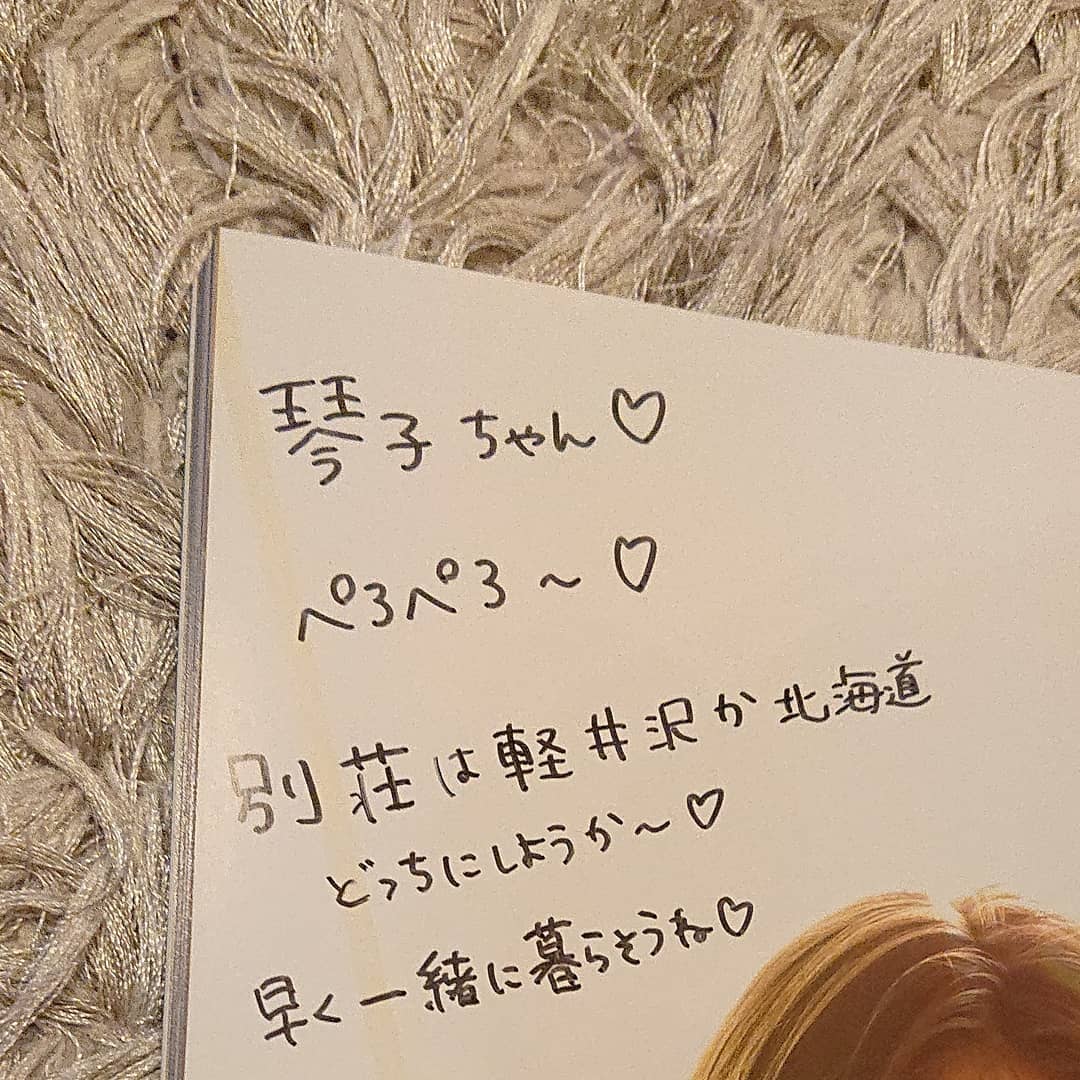 琴子ちゃん♡
ぺろぺろ〜♡
別荘は軽井沢か北海道
どっちにしようか〜♡
早く一緒に暮らそうね♡